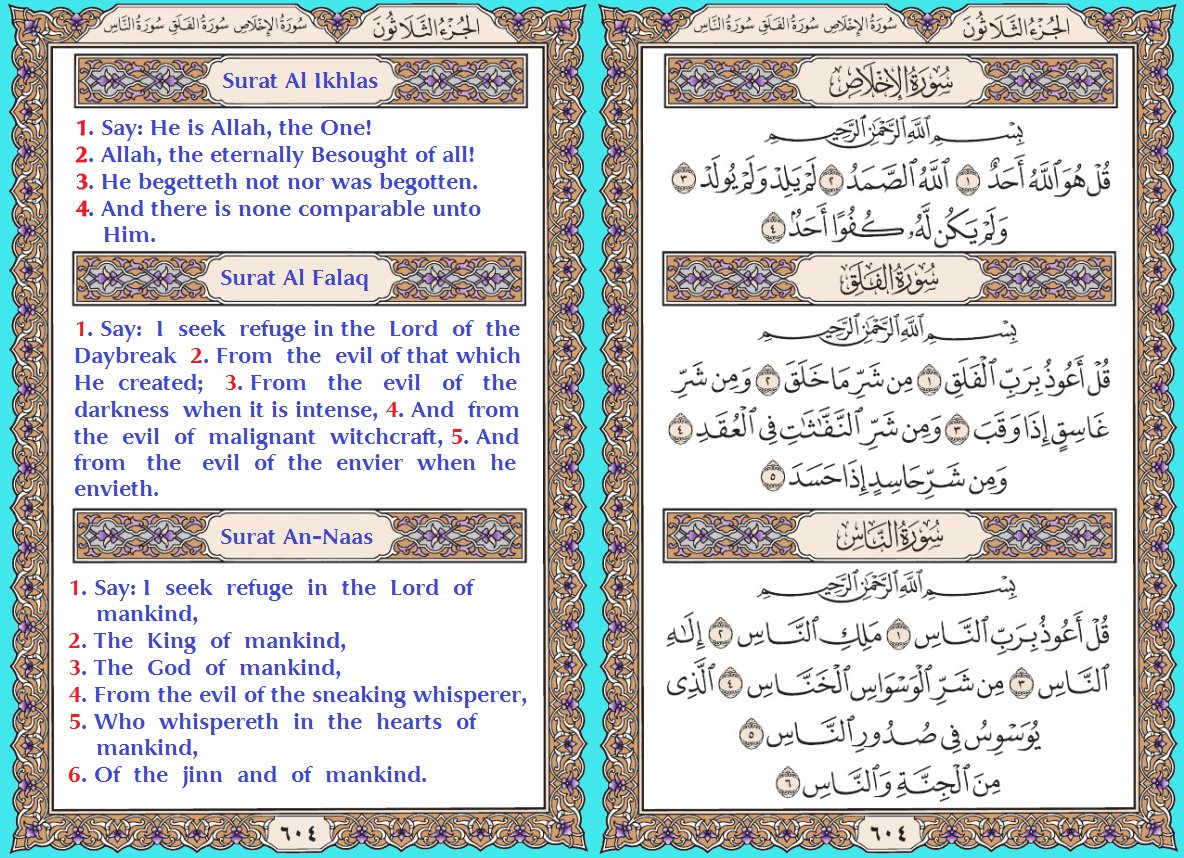 الجُزْءُ الثَّلَاثُونَ سُورَةُ الإِخْلَاصِ سُورَةُ الفَلَقِ سُورَةُ النَّاسِ
Surat Al Ikhlas
1. Say: He is Allah, the One!
2. Allah, the eternally Besought of all!
3. He begetteth not nor was begotten.
4. And there is none comparable unto
Him.
Surat Al Falaq
1. Say: I seek refuge in the Lord of the
Daybreak 2. From the evil of that which
He created; 3. From the evil of the
darkness when it is intense, 4. And from
the evil of malignant witchcraft, 5. And
from the evil of the envier when he
envieth.
Surat An-Naas
1. Say: I seek refuge in the Lord of
mankind,
2. The King of mankind,
3. The God of mankind,
4. From the evil of the sneaking whisperer,
5. Who whispereth in the hearts of
mankind,
6. Of the jinn and of mankind.
٦٠٤
الجُزْءُ الثَّلَاثُونَ سُورَةُ الإِخْلَاصِ سُورَةُ الفَلَقِ سُورَةُ النَّاسِ
سُورَةُ الإِخْلَاصِ
بِسْمِ ٱللَّهِ ٱلرَّحْمَٰنِ ٱلرَّحِيمِ
قُلْ هُوَ ٱللَّهُ أَحَدٌ ١ ٱللَّهُ ٱلصَّمَدُ ٢ لَمْ يَلِدْ وَلَمْ يُولَدْ ٣
وَلَمْ يَكُن لَّهُۥ كُفُوًا أَحَدٌۢ ٤
سُورَةُ الفَلَقِ
بِسْمِ ٱللَّهِ ٱلرَّحْمَٰنِ ٱلرَّحِيمِ
قُلْ أَعُوذُ بِرَبِّ ٱلْفَلَقِ ١ مِن شَرِّ مَا خَلَقَ ٢ وَمِن شَرِّ
غَاسِقٍ إِذَا وَقَبَ ٣ وَمِن شَرِّ ٱلنَّفَّٰثَٰتِ فِى ٱلْعُقَدِ ٤
وَمِن شَرِّ حَاسِدٍ إِذَا حَسَدَ ٥
سُورَةُ النَّاسِ
بِسْمِ ٱللَّهِ ٱلرَّحْمَٰنِ ٱلرَّحِيمِ
قُلْ أَعُوذُ بِرَبِّ ٱلنَّاسِ ١ مَلِكِ ٱلنَّاسِ ٢ إِلَٰهِ
ٱلنَّاسِ ٣ مِن شَرِّ ٱلْوَسْوَاسِ ٱلْخَنَّاسِ ٤ ٱلَّذِى
يُوَسْوِسُ فِى صُدُورِ ٱلنَّاسِ ٥
مِنَ ٱلْجِنَّةِ وَٱلنَّاسِ ٦
٦٠٤